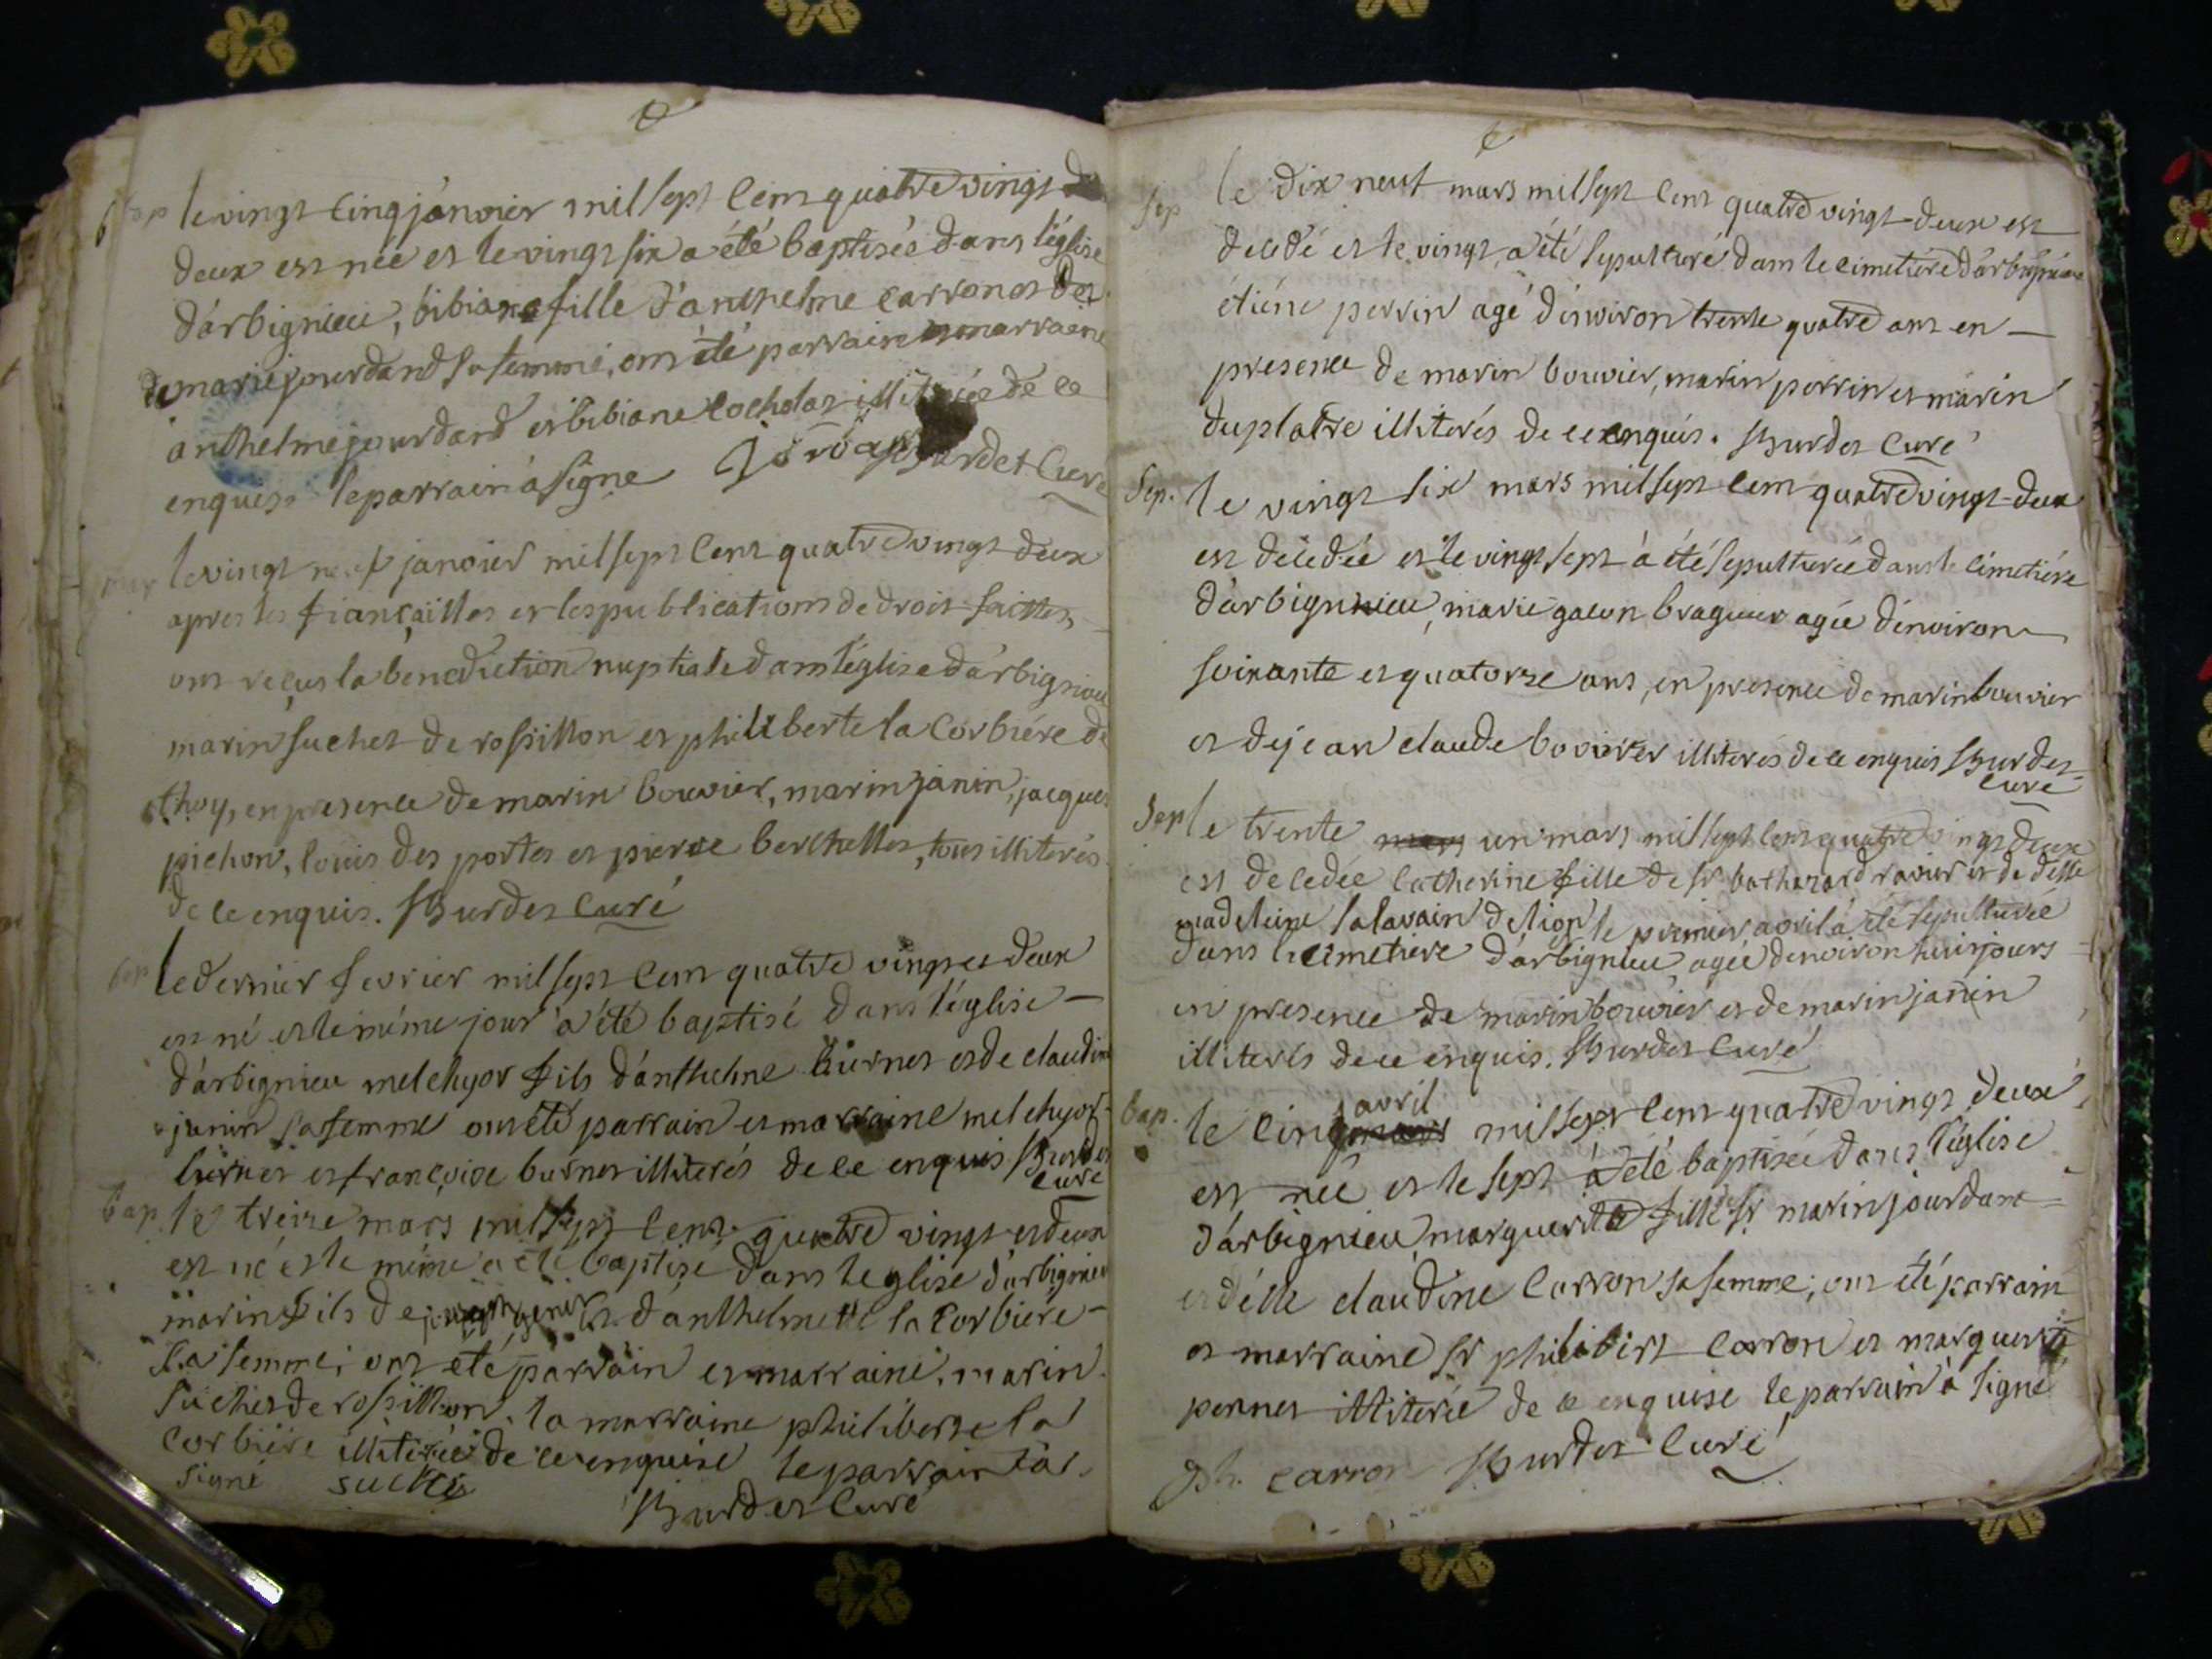 bap le vingt cinq janvier mil sept cent quatre vingt
deux est née et le vingt six a été baptisée dans l'église
d'arbignieu, bibiane fille d'anthelme carron et
de marie jourdand sa femme, ont été parrain et marraine
anthelme jourdand et bibiane cochdat illiterée de ce
enquise le parrain à signé Burdet Curé
mar le vingt neuf janvier mil sept cent quatre vingt deux
apres les fiançailles et les publications de droit faittes,
ont reçus la benediction nuptiale dans l'église d'arbignieu
marin suchet de rossillon et philiberte la corbiére de
thoy, en presence de marin bouvier, marin janin, jacques
pichon, louis des portes et pierre berthellet, tous illiterés
de ce enquis. Burdet Curé
bap le dernier fevrier mil sept cent quatre vingt et deux
est né et le même jour a été baptisé dans l'église
d'arbignieu melchyor fils d'anthelme burnet et de claudine
janin sa femme ont été parrain et marraine melchyor
burnet et françoise burnet illiterés de ce enquis Burdet
curé
bap. le treize mars mil sept cent quatre vingt et deux
est né et le même a été baptisé dans l'eglise d'arbignieu
marin fils de et d'anthelmette la Corbiere
sa femme; ont été parrain et marraine, marin
suchet de rossillon, la marraine philiberte la
corbiére illiterée de ce enquise le parrain à
signé suchet
Burdet Curé
Sep le dix neuf mars mil sept cent quatre vingt deux est
decedé et le vingt a été sepulturé dans le cimetiére d'arbignieu
étiéne perrin agé d'environ trente quatre ans en
presence de marin bouvier, marin perrin et marin
duplatre illiterés de ce enquis. Burdet Curé
Sep. le vingt six mars mil sept cent quatre vingt deux
est décédée et le vingt sept à été sepulturée dans le cimetiére
d'arbignieu, marie galon braguier agée d'environ
soixante et quatorze ans, en presence de marin bouvier
et de jean claude bouvier illiterés de ce enquis Burdet
curé
Sep le trente mars un mars mil sept cent quatre vingt deux
est decedée Catherine fille de sr bathazard ravier et de delle
madeleine salavain de lion et le premier avril à été sepulturée
dans le cimetiere d'arbignieu, agée d'environ huit jours
en presence de marin bouvier et de marin janin
illiterés de ce enquis. Burdet Curé
avril
bap. le cinq mars mil sept cent quatre vingt deux
est née et le sept à été baptisée dans l'église
d'arbignieu marguerite fille de sr marin jourdan
et delle claudine Carron sa femme; ont été parrain
et marraine sr philibert Carron et marguerite
pernet illiterée de ce enquise le parrain à signé
Ph. carron Burdet Curé